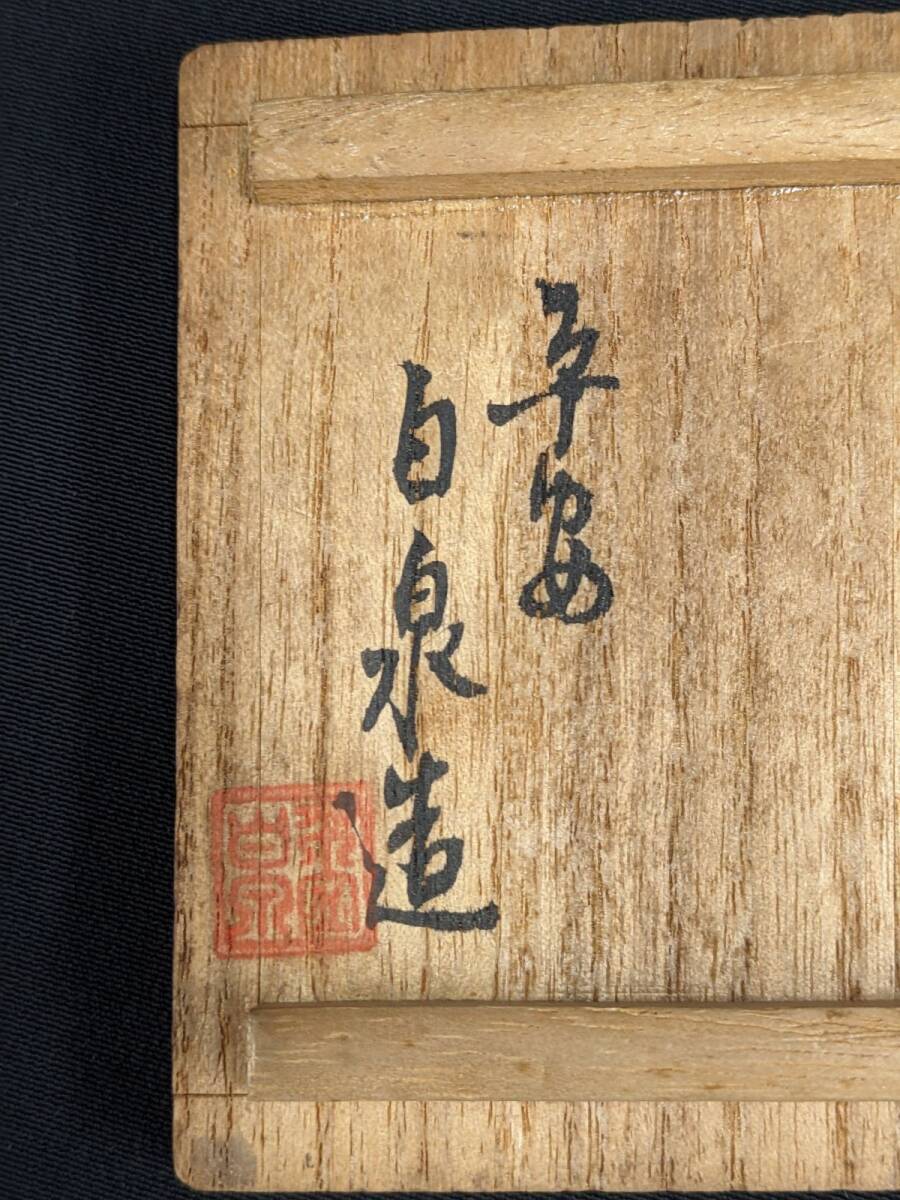 平安
白泉造